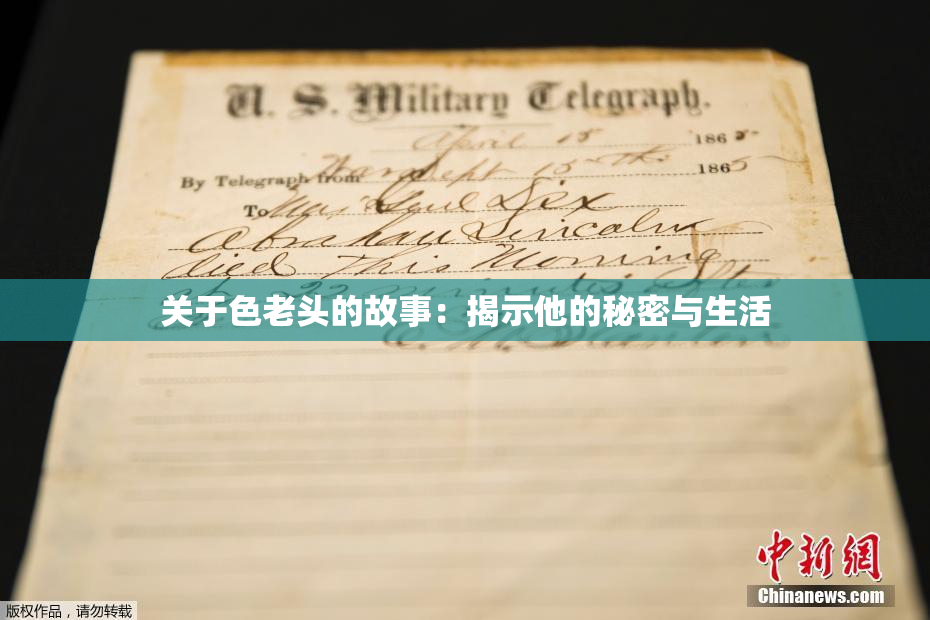 U. S. Military Telegraph.
April 15 1865
By Telegraph from War Dept 15th 1865
To Maj Genl Dix
Abraham Lincoln
died this Morning
at 22 minutes after
关于色老头的故事：揭示他的秘密与生活
E. M. Stanton
中新网
Chinanews.com
版权作品，请勿转载